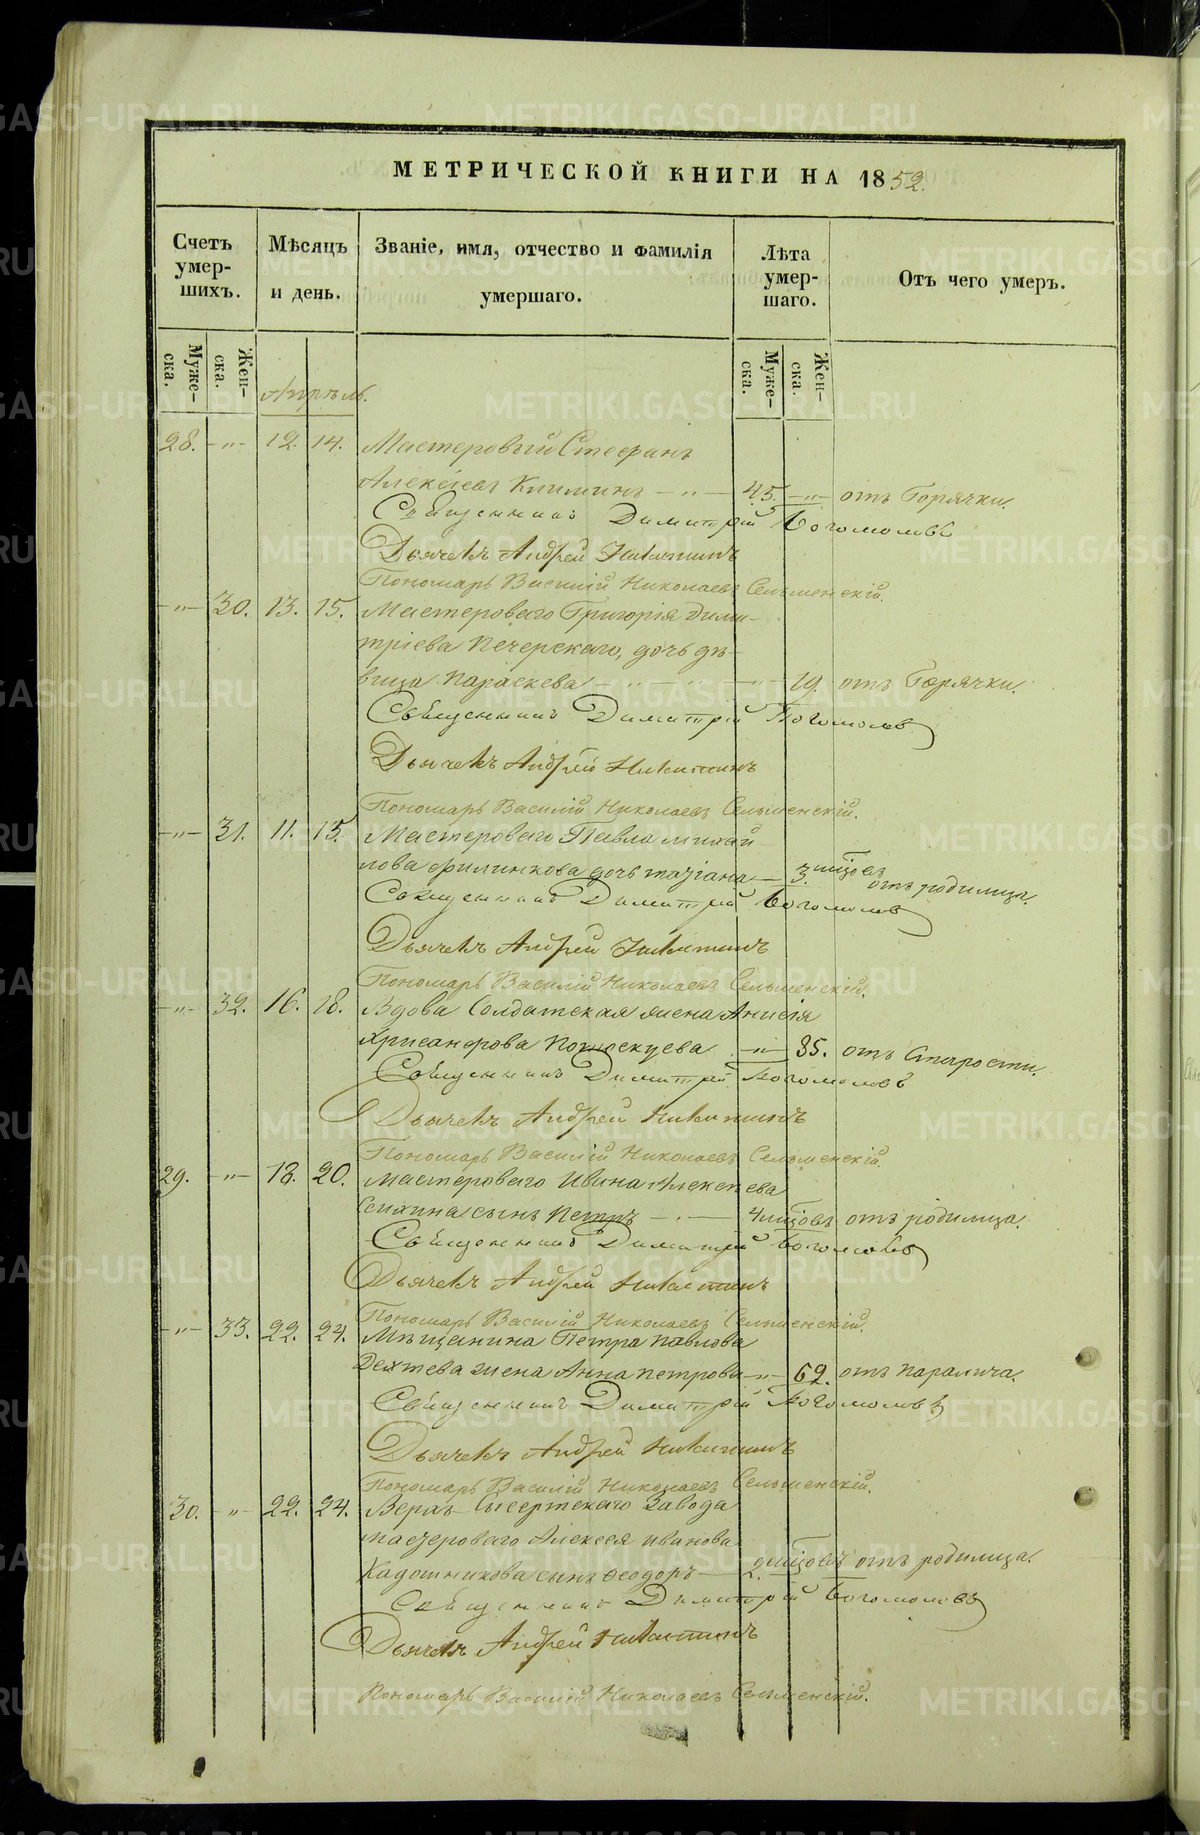 МЕТРИЧЕСКОЙ КНИГИ НА 1852.
Счетъ умер- шихъ.
Мѣсяцъ и день.
Званіе, имя, отчество и фамилія умершаго.
Лѣта умер- шаго.
Отъ чего умеръ.
Муже- ска.
Жен- ска.
Муже- ска.
Жен- ска.
Апрѣль.
28. -"- 12. 14. Мастеровый Стефанъ
Алексѣевъ Климинъ -"- 45. -"- отъ Горячки.
Священникъ Димитрій Богомоловъ
Дьячекъ Андрей Никитинъ
Пономарь Василій Николаевъ Сельменскій.
-"- 30. 13. 15. Мастероваго Григорія Дими-
тріева Печерскаго, дочь дѣ-
вица Параскева -"- 19. отъ Горячки.
Священникъ Димитрій Богомоловъ
Дьячекъ Андрей Никитинъ
Пономарь Василій Николаевъ Сельменскій.
-"- 31. 11. 15. Мастероваго Павла михай-
лова филинкова дочь татіана - 3. мцовъ отъ родимца.
Священникъ Димитрій Богомоловъ
Дьячекъ Андрей Никитинъ
Пономарь Василій Николаевъ Сельменскій.
-"- 32. 16. 18. Вдова Солдатская жена Анисія
Хрисанфова -"- 85. отъ Старости.
Священникъ Димитрій Богомоловъ
Дьячекъ Андрей Никитинъ
Пономарь Василій Николаевъ Сельменскій.
29. -"- 18. 20. Мастероваго Ивана Алексѣева
сынъ Петръ - 4 мцовъ отъ родимца.
Священникъ Димитрій Богомоловъ
Дьячекъ Андрей Никитинъ
Пономарь Василій Николаевъ Сельменскій.
-"- 33. 22. 24. Мѣщанина Петра Павлова
жена Анна петрова -"- 62. отъ паралича.
Священникъ Димитрій Богомоловъ
Дьячекъ Андрей Никитинъ
Пономарь Василій Николаевъ Сельменскій.
30. -"- 22. 24. Верхъ-Сысертскаго Завода
мастероваго Алексея иванова
Кадошникова сынъ Феодоръ - 2. мцовъ отъ родимца.
Священникъ Димитрій Богомоловъ
Дьячекъ Андрей Никитинъ
Пономарь Василій Николаевъ Сельменскій.
METRIKI.GASO-URAL.RU